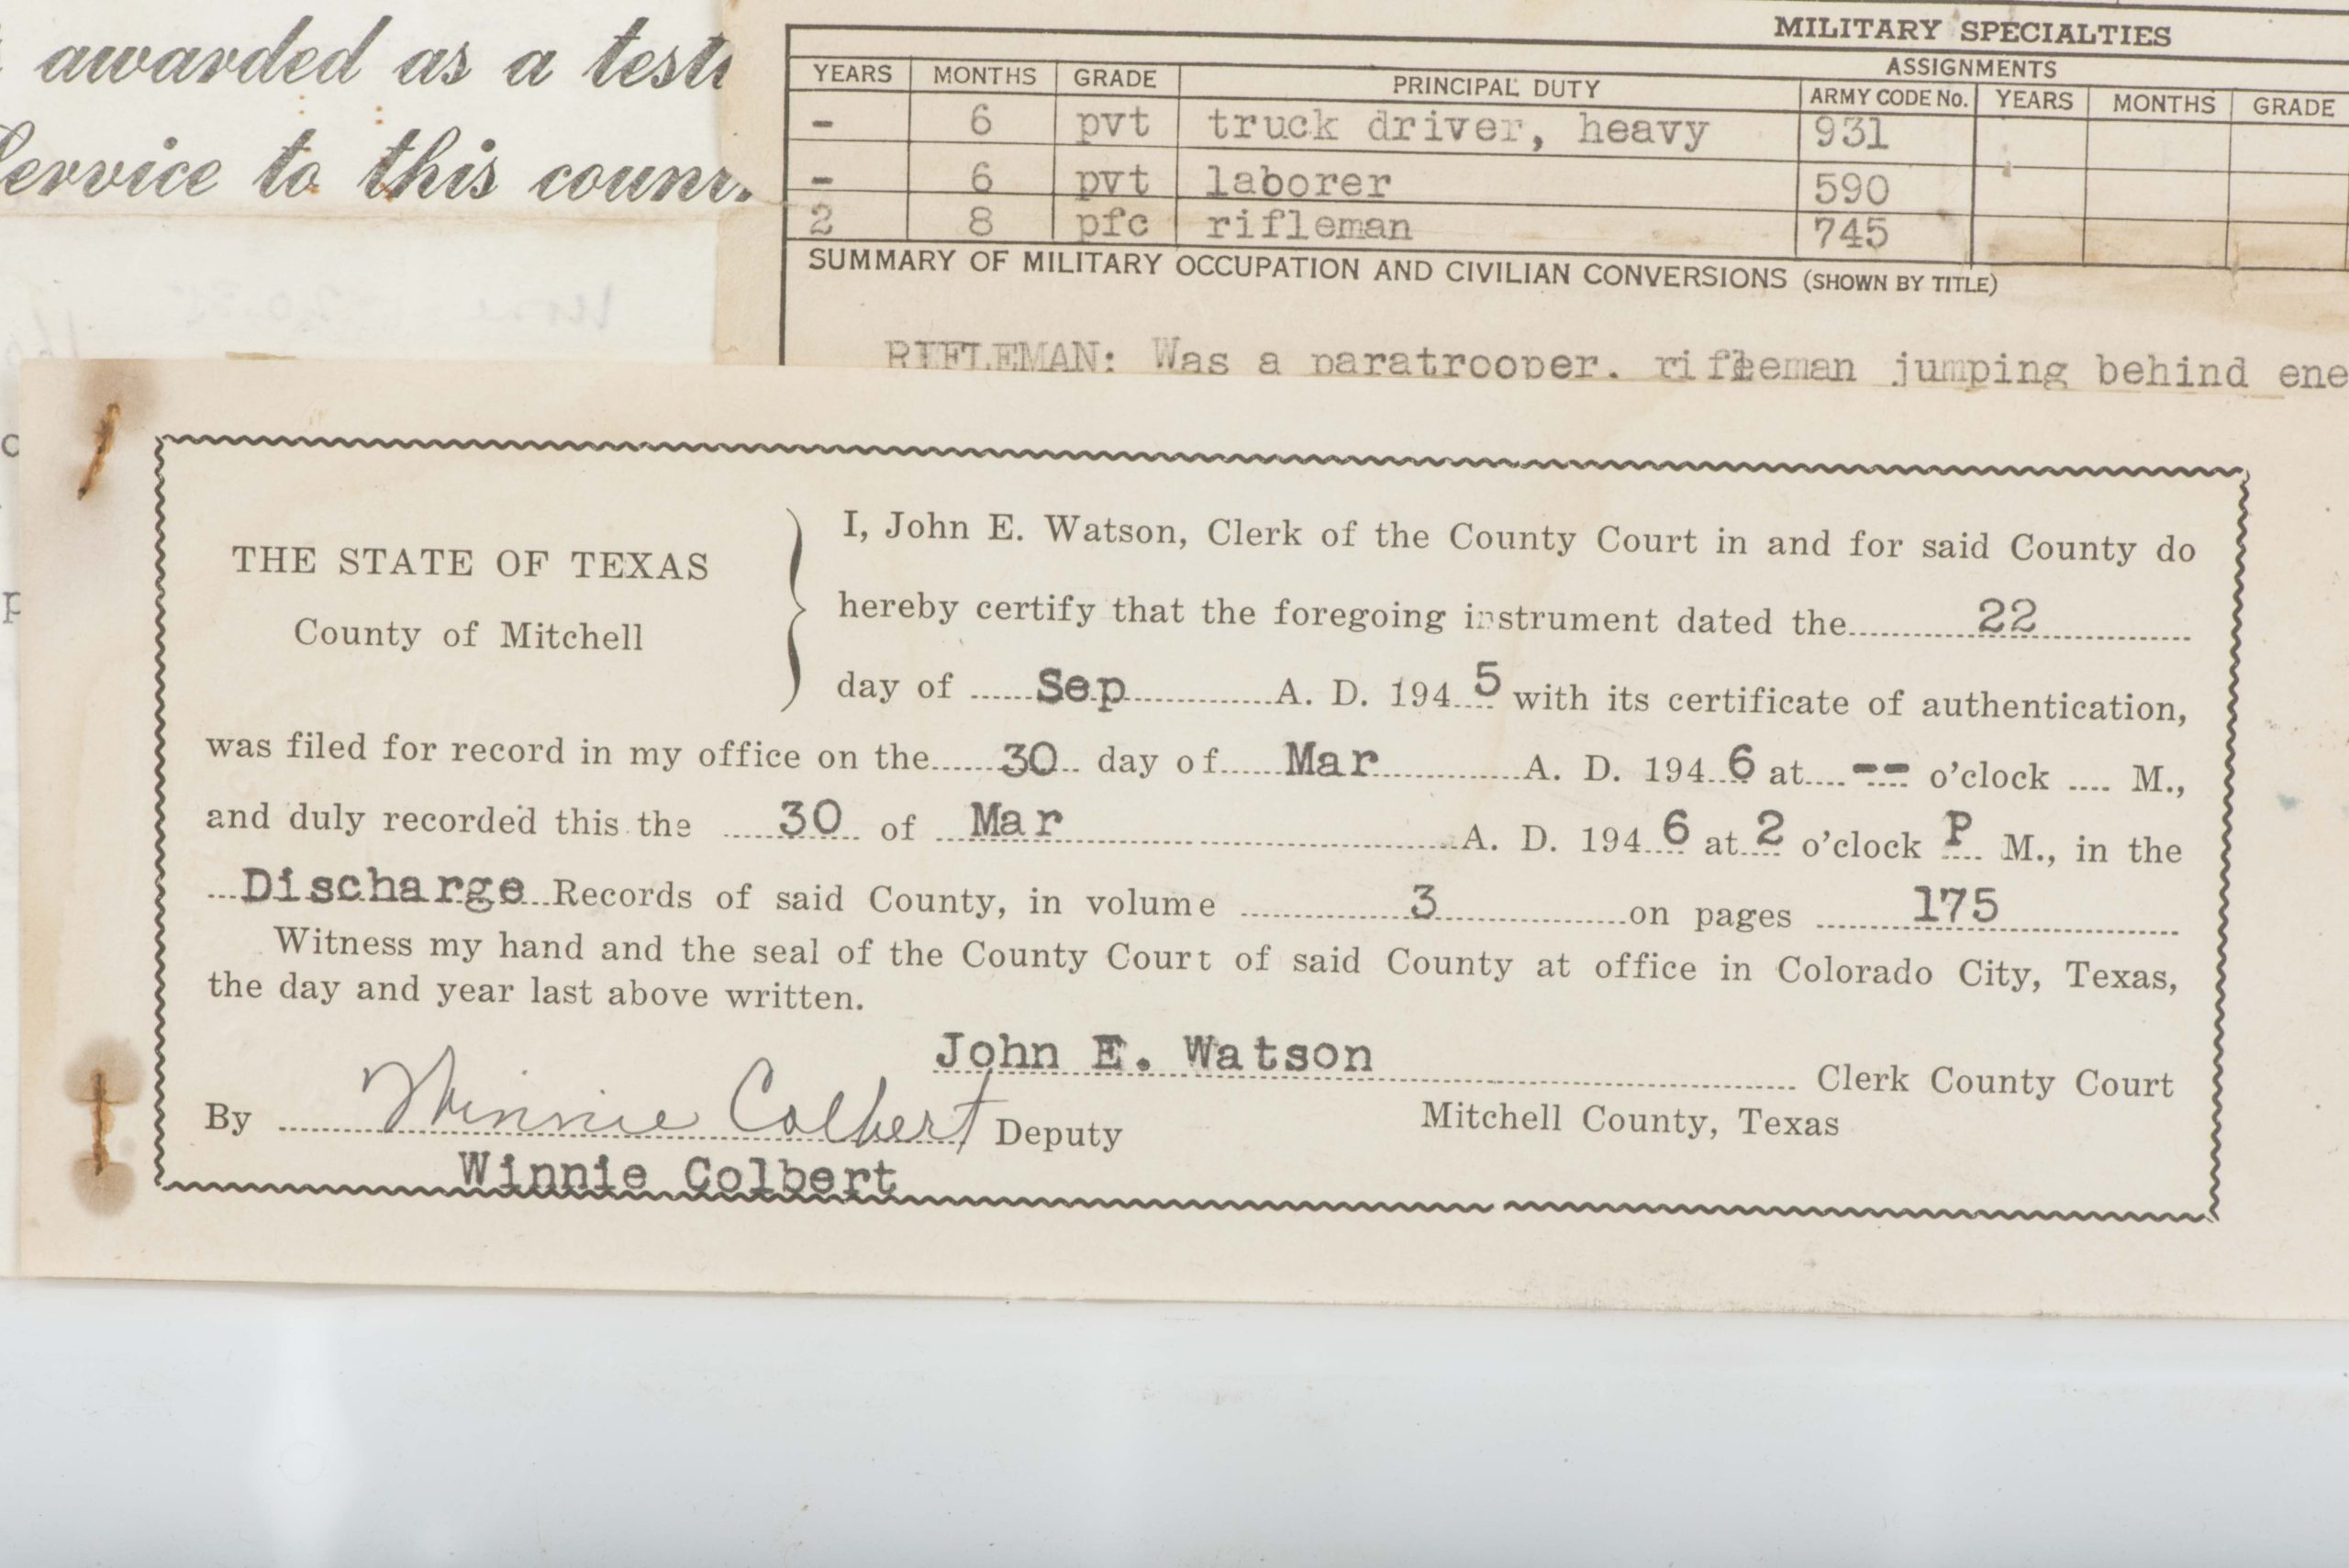 awarded as a
Service to this
MILITARY SPECIALTIES
ASSIGNMENTS
YEARS MONTHS GRADE PRINCIPAL DUTY ARMY CODE No. YEARS MONTHS GRADE
- 6 pvt truck driver, heavy 931
- 6 pvt laborer 590
2 8 pfc rifleman 745
SUMMARY OF MILITARY OCCUPATION AND CIVILIAN CONVERSIONS (SHOWN BY TITLE)
RIFLEMAN: Was a paratrooper, rifleman jumping behind ene
THE STATE OF TEXAS
County of Mitchell
I, John E. Watson, Clerk of the County Court in and for said County do
hereby certify that the foregoing instrument dated the 22
day of Sep A. D. 194 5 with its certificate of authentication,
was filed for record in my office on the 30 day of Mar A. D. 194 6 at -- o'clock .... M.,
and duly recorded this the 30 of Mar A. D. 194 6 at 2 o'clock P M., in the
Discharge Records of said County, in volume 3 on pages 175
Witness my hand and the seal of the County Court of said County at office in Colorado City, Texas,
the day and year last above written.
John E. Watson Clerk County Court
By Winnie Colbert Deputy Mitchell County, Texas
Winnie Colbert